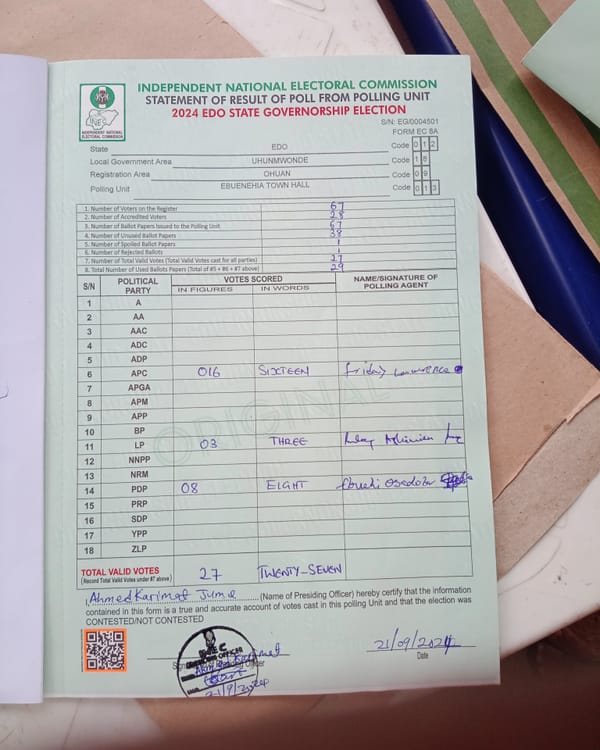 INDEPENDENT NATIONAL ELECTORAL COMMISSION
STATEMENT OF RESULT OF POLL FROM POLLING UNIT
2024 EDO STATE GOVERNORSHIP ELECTION
INEC
INDEPENDENT NATIONAL ELECTORAL COMMISSION
S/N: EG/0004501
FORM EC 8A
State EDO Code 0 1 2
Local Government Area UHUNMWONDE Code 1 8
Registration Area OHUAN Code 0 9
Polling Unit EBUENEHIA TOWN HALL Code 0 1 3
1. Number of Voters on the Register 67
2. Number of Accredited Voters 28
3. Number of Ballot Papers Issued to the Polling Unit 67
4. Number of Unused Ballot Papers 38
5. Number of Spoiled Ballot Papers 1
6. Number of Rejected Ballots 1
7. Number of Total Valid Votes (Total Valid Votes cast for all parties) 27
8. Total Number of Used Ballots Papers (Total of #5 + #6 + #7 above) 29
S/N POLITICAL PARTY VOTES SCORED NAME/SIGNATURE OF POLLING AGENT
IN FIGURES IN WORDS
1 A
2 AA
3 AAC
4 ADC
5 ADP
6 APC 016 SIXTEEN Friday
7 APGA
8 APM
9 APP
10 BP
11 LP 03 THREE
12 NNPP
13 NRM
14 PDP 08 EIGHT
15 PRP
16 SDP
17 YPP
18 ZLP
ORIGINAL
TOTAL VALID VOTES 27 TWENTY-SEVEN
(Record Total Valid Votes under #7 above)
I, Ahmed Karimat Juma (Name of Presiding Officer) hereby certify that the information
contained in this form is a true and accurate account of votes cast in this polling Unit and that the election was
CONTESTED/NOT CONTESTED
INEC
21/9/2024
21/09/2024
Date